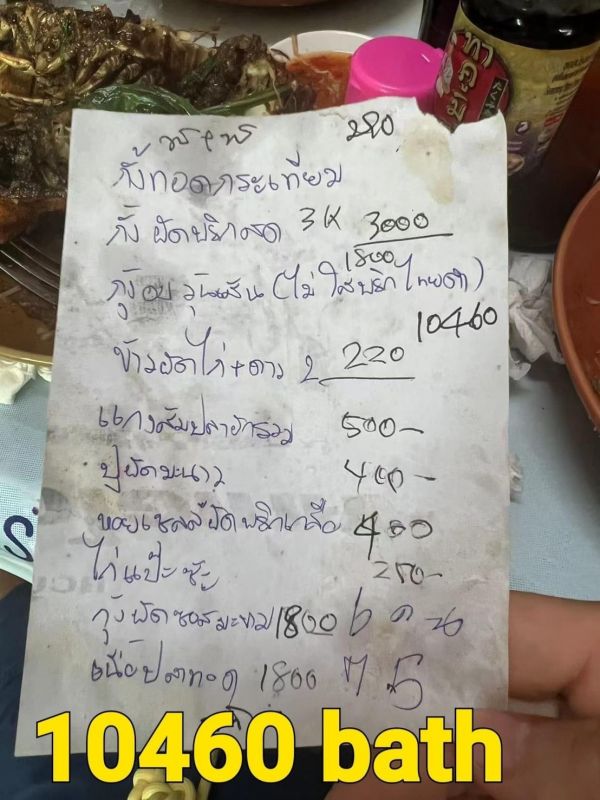 290
กุ้งทอดกระเทียม
กุ้งผัดพริกสด 3K 3000
1800
กุ้งอบวุ้นเส้น (ไม่ใส่พริกไทยดำ)
10460
ข้าวผัดไก่+ดาว 2 220
แกงส้มปลา 500-
ปูผัดมะนาว 400-
หอยเชลล์ผัดพริกเกลือ 400
ไก่แป๊ะซะ 250-
กุ้งผัดซอสมะขาม 1800 6 คน
1800 ต 5
10460 bath